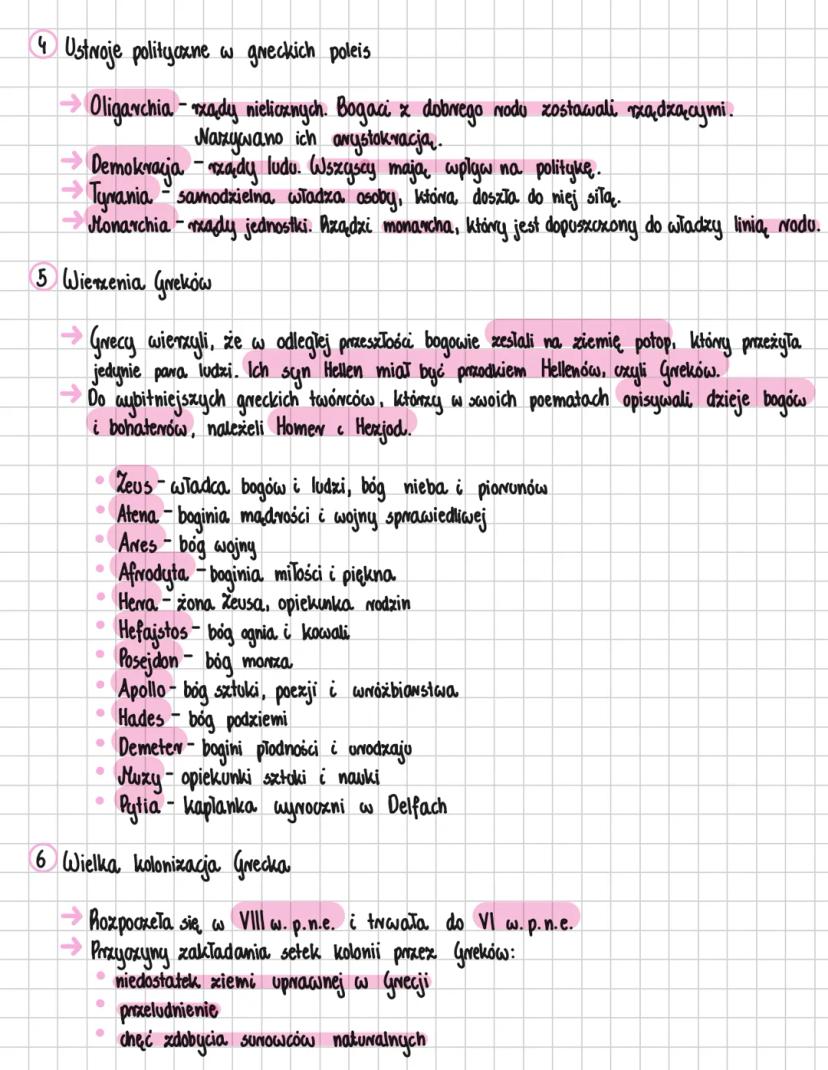 4 Ustroje polityczne w greckich poleis
→ Oligarchia - rządy nielicznych. Bogaci z dobrego rodu zostawali rządzącymi.
Nazywano ich arystokracją.
→ Demokracja - rządy ludu. Wszyscy mają wpływ na politykę.
→ Tyrania - samodzielna władza osoby, która doszła do niej siłą.
→ Monarchia - rządy jednostki. Rządzi monarcha, który jest dopuszczony do władzy linią rodu.
5 Wierzenia Greków
→ Grecy wierzyli, że w odległej przeszłości bogowie zesłali na ziemię potop, który przeżyła
jedynie para ludzi. Ich syn Hellen miał być przodkiem Hellenów, czyli Greków.
→ Do wybitniejszych greckich twórców, którzy w swoich poematach opisywali dzieje bogów
i bohaterów, należeli Homer i Hezjod.
• Zeus - władca bogów i ludzi, bóg nieba i piorunów
• Atena - boginia mądrości i wojny sprawiedliwej
• Ares - bóg wojny
• Afrodyta - boginia miłości i piękna
• Hera - żona Zeusa, opiekunka rodzin
• Hefajstos - bóg ognia i kowali
• Posejdon - bóg morza
• Apollo - bóg sztuki, poezji i wróżbiarstwa
• Hades - bóg podziemi
• Demeter - bogini płodności i urodzaju
• Muzy - opiekunki sztuki i nauki
• Pytia - kapłanka wyroczni w Delfach
6 Wielka kolonizacja Grecka
→ Rozpoczęła się w VIII w. p.n.e. i trwała do VI w. p.n.e.
→ Przyczyny zakładania setek kolonii przez Greków:
• niedostatek ziemi uprawnej w Grecji
• przeludnienie
• chęć zdobycia surowców naturalnych